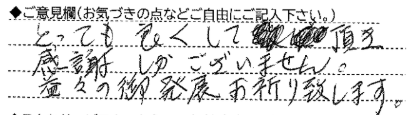 ◆ご意見欄(お気づきの点などご自由にご記入下さい。)
とっても良くして頂き
感謝しかございません。
益々の御発展お祈り致します。